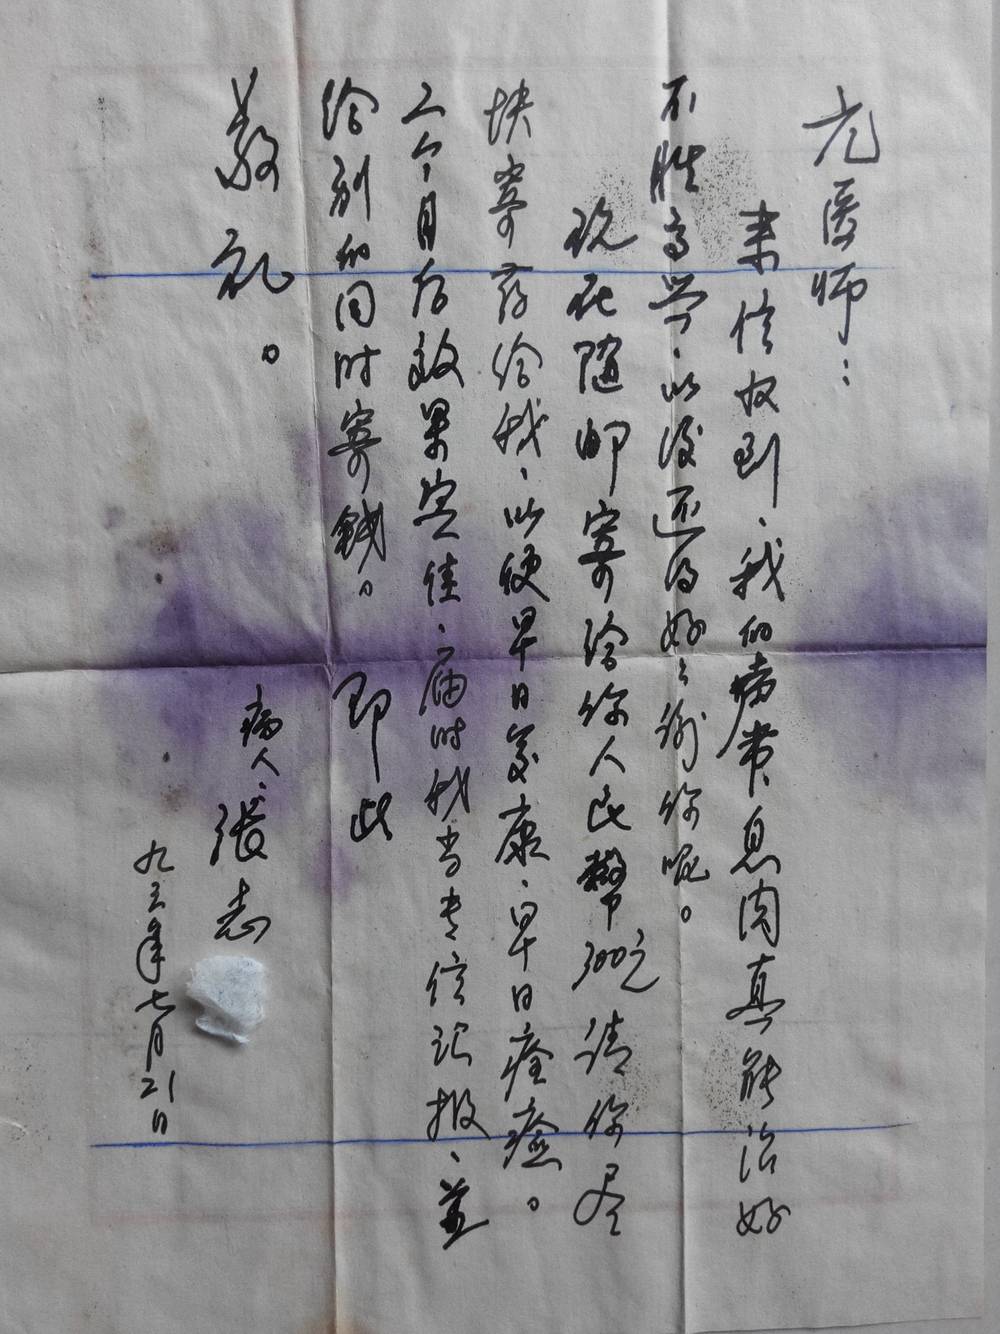 尤医师：
来信收到、我的病常息肉真能治好
不胜高兴、以后还得好好谢你呢。
现在随邮寄给你人民幣300元请你尽
快寄药给我、以便早日复康、早日痊癒。
二个月后效果实佳、届时我当专信汇报、并
给别的同时寄钱。即此
敬礼。
病人、张志
九三年七月21日